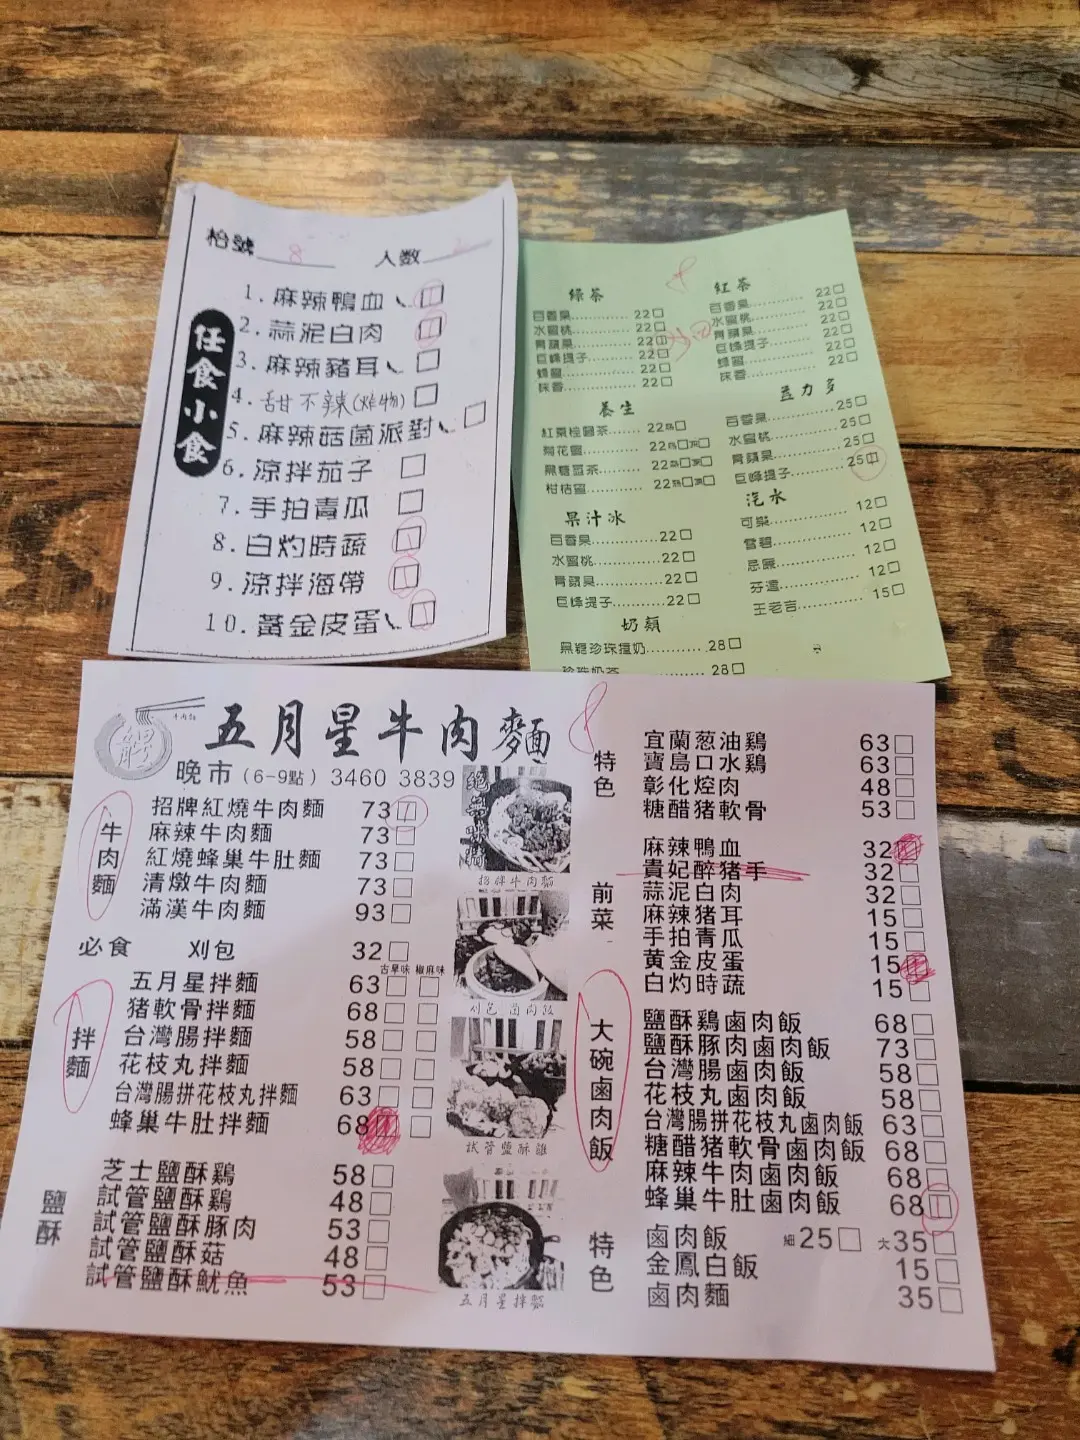 枱號 8 人数
任食小食
1. 麻辣鴨血
2. 蒜泥白肉
3. 麻辣豬耳
4. 甜不辣(炸物)
5. 麻辣菇菌派對
6. 涼拌茄子
7. 手拍青瓜
8. 白灼時蔬
9. 涼拌海帶
10. 黃金皮蛋
8
綠茶
百香果 22
水蜜桃 22
青蘋果 22
巨峰提子 22
蜂蜜 22
抹香 22
紅茶
百香果 22
水蜜桃 22
青蘋果 22
巨峰提子 22
蜂蜜 22
抹香 22
養生
紅棗桂圓茶 22熱
菊花蜜 22
黑糖薑茶 22
柑桔蜜 22
益力多
百香果 25
水蜜桃 25
青蘋果 25
巨峰提子 25
果汁冰
百香果 22
水蜜桃 22
青蘋果 22
巨峰提子 22
汽水
可樂 12
雪碧 12
忌廉 12
芬達 12
王老吉 15
奶類
黑糖珍珠撞奶 28
珍珠奶茶 28
8
五月星牛肉麵
晚市(6-9點) 3460 3839
牛肉麵
招牌紅燒牛肉麵 73
麻辣牛肉麵 73
紅燒蜂巢牛肚麵 73
清燉牛肉麵 73
滿漢牛肉麵 93
必食 刈包 32
古早味 椒麻味
拌麵
五月星拌麵 63
猪軟骨拌麵 68
台灣腸拌麵 58
花枝丸拌麵 58
台灣腸拼花枝丸拌麵 63
蜂巢牛肚拌麵 68
鹽酥
芝士鹽酥鷄 58
試管鹽酥鷄 48
試管鹽酥豚肉 53
試管鹽酥菇 48
試管鹽酥魷魚 53
招牌牛肉麵
試管鹽酥雞
五月星拌麵
特色
宜蘭葱油鷄 63
寶島口水鷄 63
彰化焢肉 48
糖醋猪軟骨 53
前菜
麻辣鴨血 32
貴妃醉猪手 32
蒜泥白肉 32
麻辣猪耳 15
手拍青瓜 15
黄金皮蛋 15
白灼時蔬 15
大碗鹵肉飯
鹽酥鷄鹵肉飯 68
鹽酥豚肉鹵肉飯 73
台灣腸鹵肉飯 58
花枝丸鹵肉飯 58
台灣腸拼花枝丸鹵肉飯 63
糖醋猪軟骨鹵肉飯 68
麻辣牛肉鹵肉飯 68
蜂巢牛肚鹵肉飯 68
特色
鹵肉飯 細25 大35
金鳳白飯 15
鹵肉麵 35